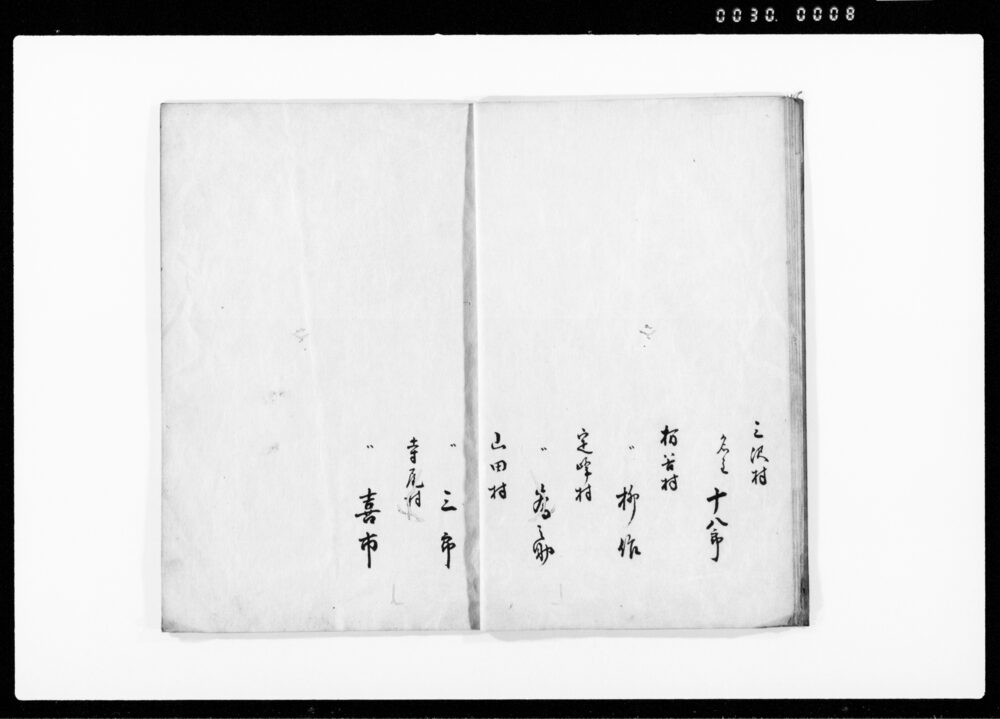 0030. 0008
三沢村
名主 十八郎
栃谷村
〃 柳作
定峰村
〃
山田村
〃 三郎
寺尾村
〃 喜市